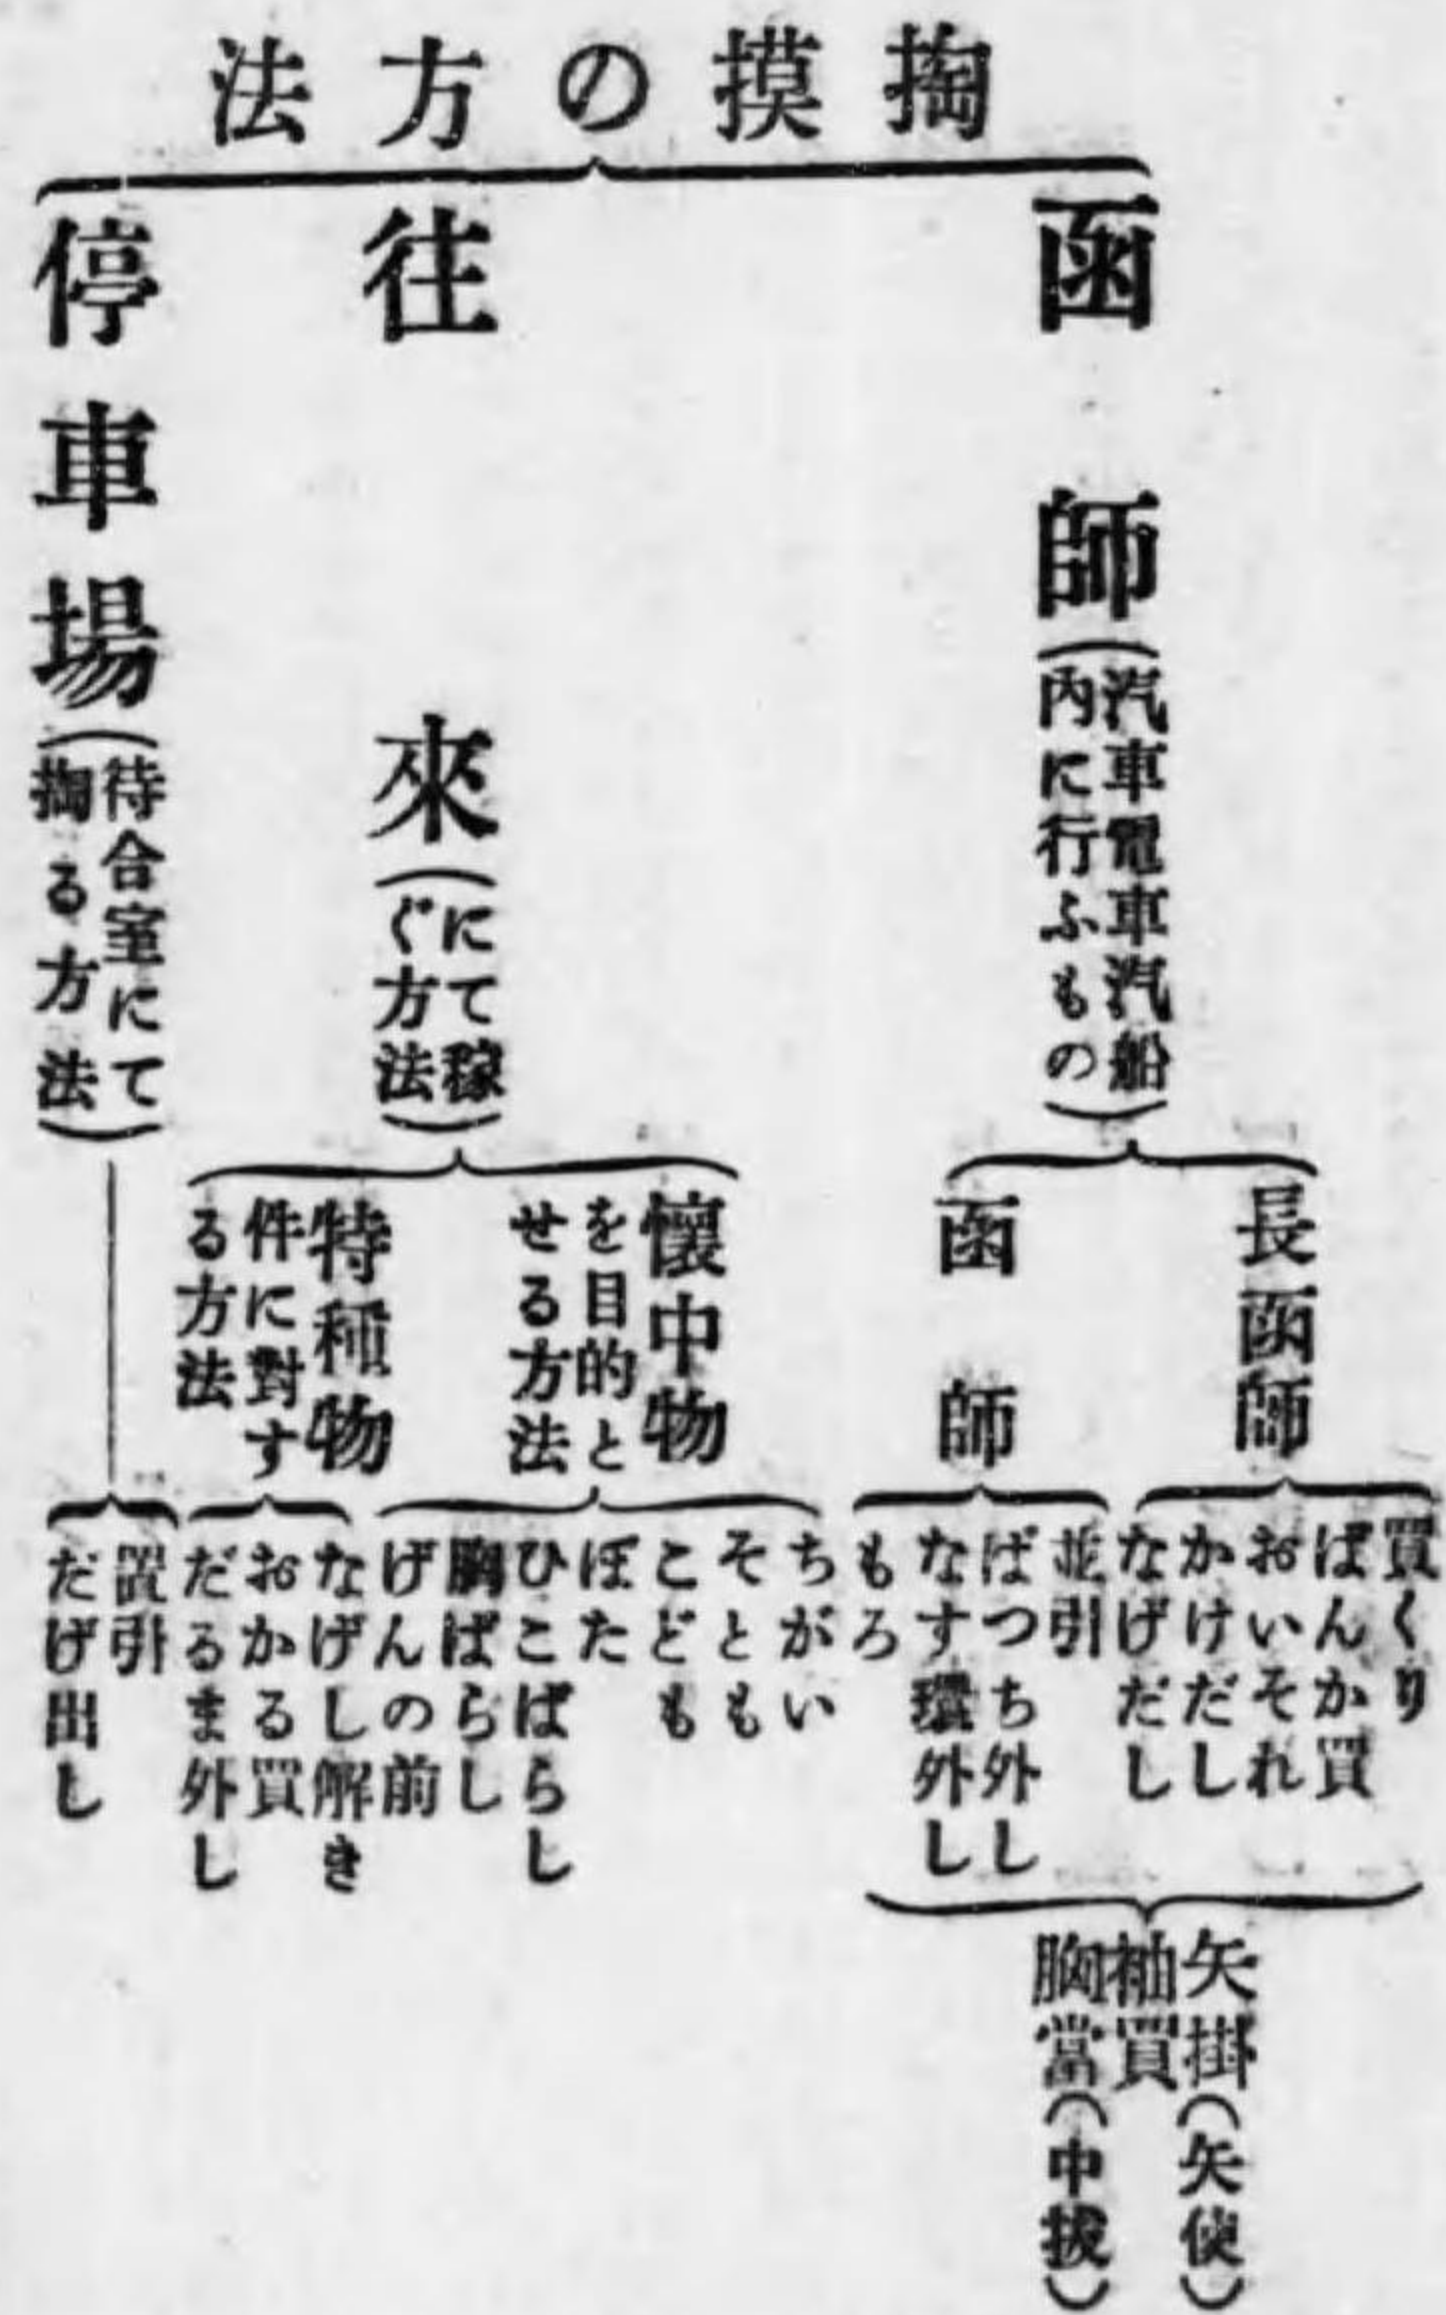 掏摸の方法
函師(汽車電車汽船
內に行ふもの)
長函師
買くり
ぱんか買
おいそれ
かけだし
なげだし
函師
並引
ぱつち外し
なす環外し
もろ
矢掛(矢使)
袖買
胸當(中拔)
往來(にて稼
ぐ方法)
懷中物
を目的と
せる方法
ちがい
そとも
こども
ぼた
ひこばらし
胸ばらし
げんの前
特種物
件に對す
る方法
なげし解き
おかる買
だるま外し
停車場(待合室にて
掏る方法)
置引
だげ出し